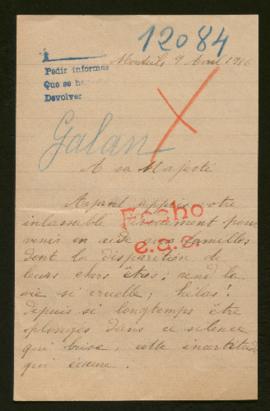 12084
9 Avril 1916
Pedir informes
Que se
Devolver
Galan
A sa Majesté
Ayant appris votre
inlassable dévouement pour
venir en aide aux familles
dont la disparition de
leurs chers êtres, rend la
vie si cruelle; hélas!
depuis si longtemps être
plongés dans ce silence
qui brise, cette incertitude
qui